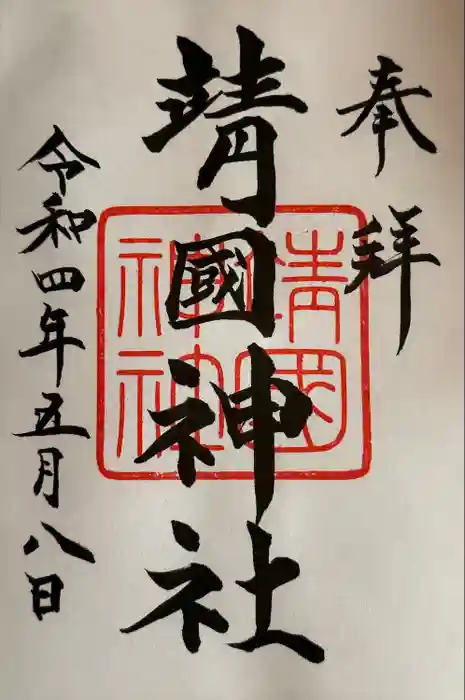 奉拝
靖國神社
靖國
神社
令和四年五月八日